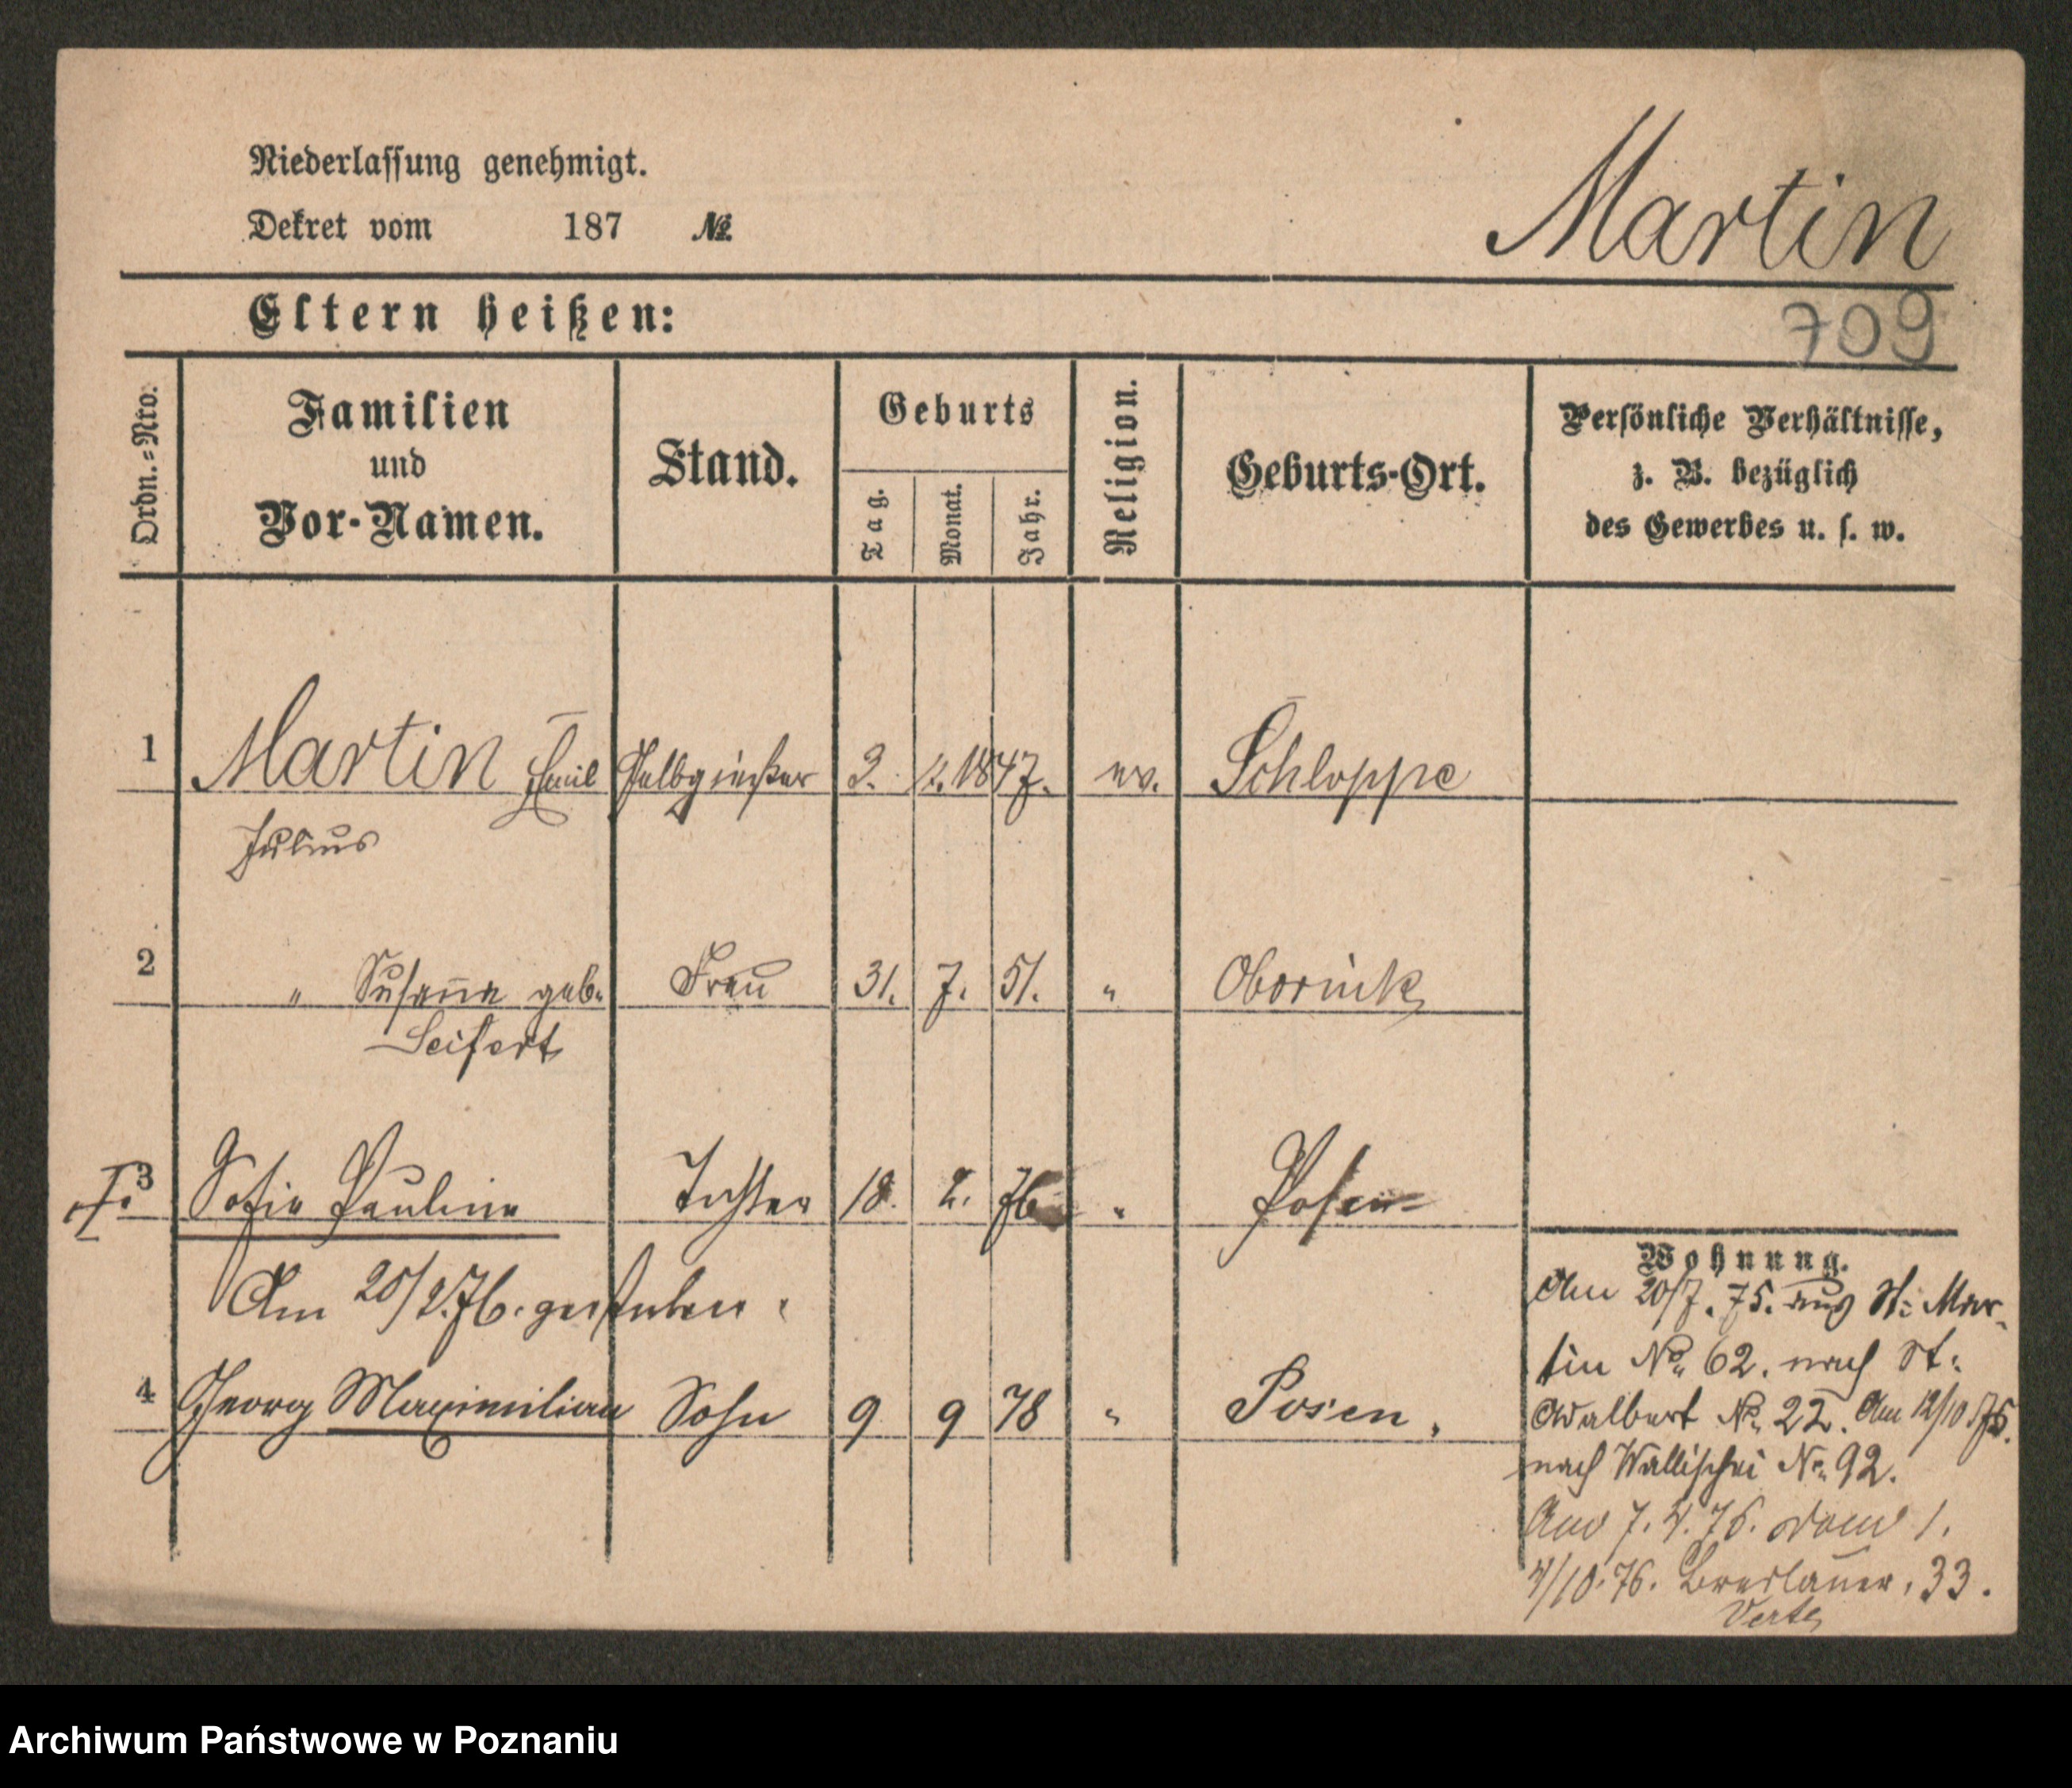 Niederlassung genehmigt.
Dekret vom 187 №
Martin
Eltern heißen:
709
Ordn.=Nro.
Familien
und
Vor-Namen.
Stand.
Geburts
Tag.
Monat.
Jahr.
Religion.
Geburts-Ort.
Persönliche Verhältnisse,
z. B. bezüglich
des Gewerbes u. s. w.
1 Martin Emil Gelbgießer 1847. ev. Schloppe
Julius
2 " Susanna geb. Frau 31. 7. 51. " Obornik
Seifert
3 Sofie Pauline Tochter 18. 2. 76 " Posen
Am 20/2.76. gestorben.
4 Georg Maximilian Sohn 9 9 78 " Posen.
Wohnung.
Am 20/7. 75. aus St. Mar-
tin No 62. nach St.
Adalbert No 22. Am 12/10 75.
nach Wallischei No 92.
7. 4. 76. Dom 1.
4/10. 76. Breslauer. 33.
Verte
Archiwum Państwowe w Poznaniu